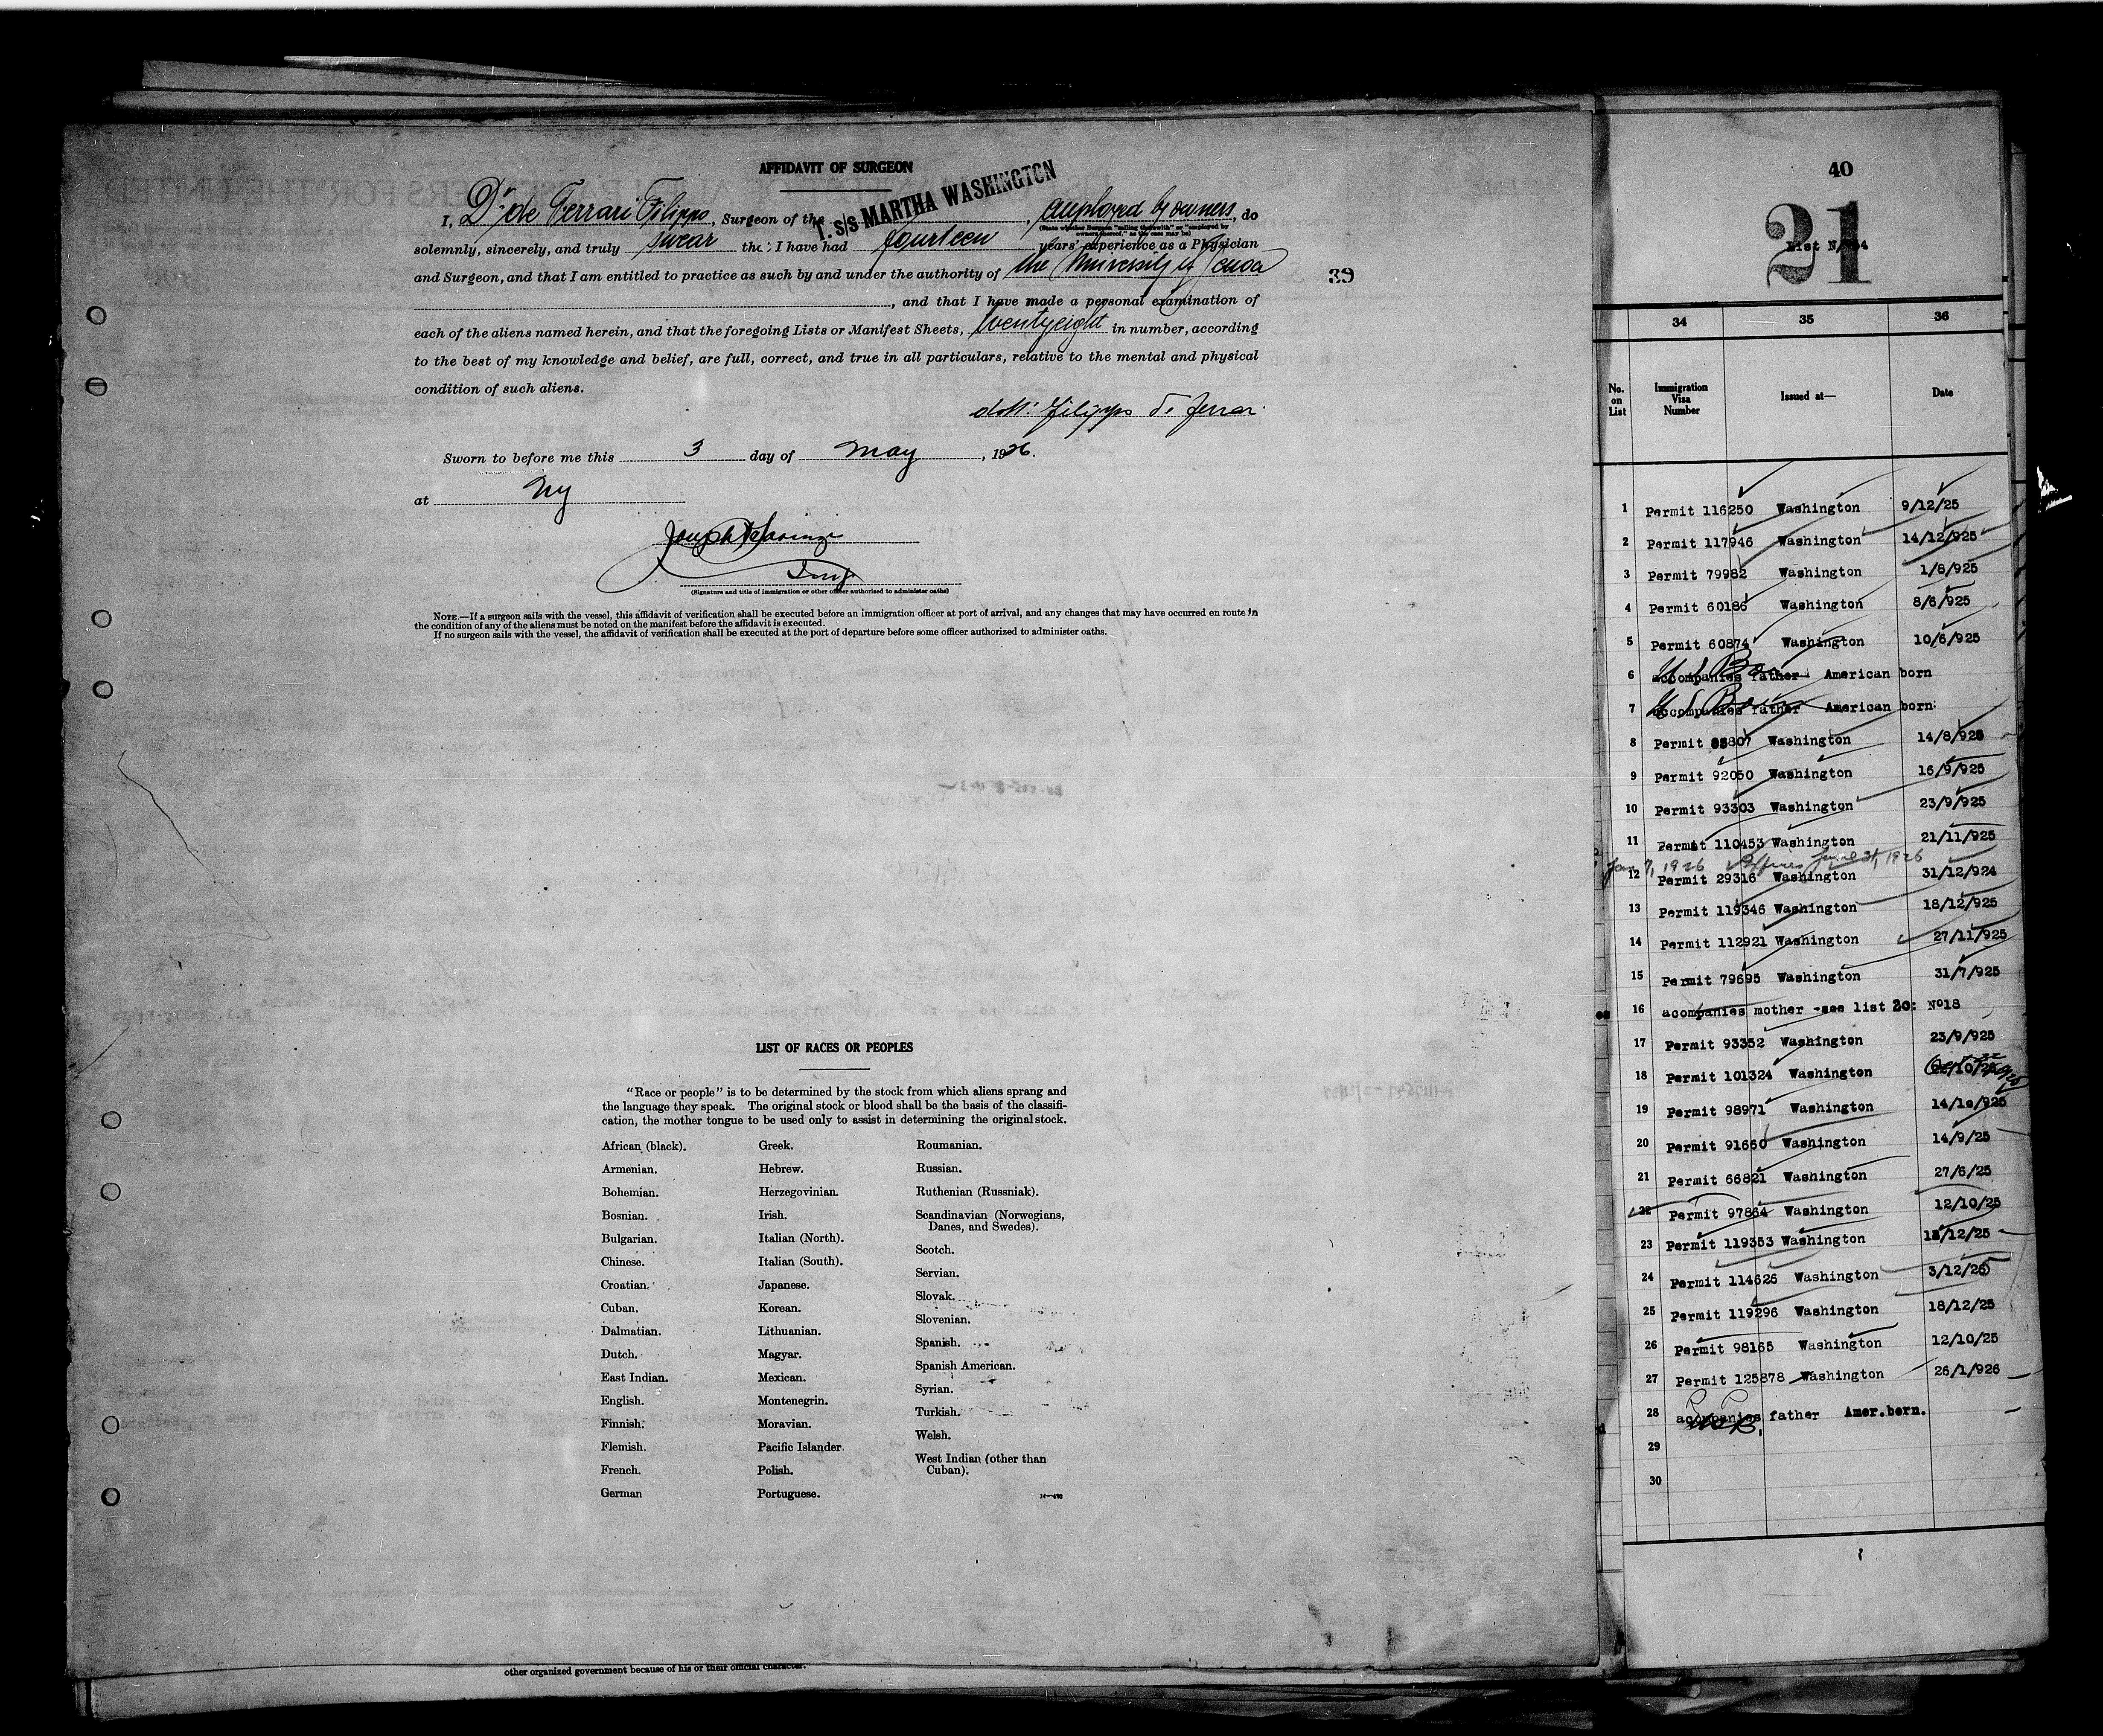 AFFIDAVIT OF SURGEON
T. S/S MARTHA WASHINGTON
I, Dr de Ferrari Filippo, Surgeon of the , employed by owners, do
(State whether Surgeon "sailing therewith" or "employed by owners thereof," as the case may be)
solemnly, sincerely, and truly swear that I have had fourteen years' experience as a Physician
and Surgeon, and that I am entitled to practice as such by and under the authority of the University of Genoa
, and that I have made a personal examination of
each of the aliens named herein, and that the foregoing Lists or Manifest Sheets, twentyeight in number, according
to the best of my knowledge and belief, are full, correct, and true in all particulars, relative to the mental and physical
condition of such aliens.
dott. Filippo De Ferrari
Sworn to before me this 3 day of May, 1926.
at NY
Insp
(Signature and title of immigration or other officer authorized to administer oaths)
NOTE.—If a surgeon sails with the vessel, this affidavit of verification shall be executed before an immigration officer at port of arrival, and any changes that may have occurred en route in
the condition of any of the aliens must be noted on the manifest before the affidavit is executed.
If no surgeon sails with the vessel, the affidavit of verification shall be executed at the port of departure before some officer authorized to administer oaths.
39
LIST OF RACES OR PEOPLES
"Race or people" is to be determined by the stock from which aliens sprang and
the language they speak. The original stock or blood shall be the basis of the classifi-
cation, the mother tongue to be used only to assist in determining the original stock.
African (black).
Armenian.
Bohemian.
Bosnian.
Bulgarian.
Chinese.
Croatian.
Cuban.
Dalmatian.
Dutch.
East Indian.
English.
Finnish.
Flemish.
French.
German
Greek.
Hebrew.
Herzegovinian.
Irish.
Italian (North).
Italian (South).
Japanese.
Korean.
Lithuanian.
Magyar.
Mexican.
Montenegrin.
Moravian.
Pacific Islander
Polish.
Portuguese.
Roumanian.
Russian.
Ruthenian (Russniak).
Scandinavian (Norwegians,
Danes, and Swedes).
Scotch.
Servian.
Slovak.
Slovenian.
Spanish.
Spanish American.
Syrian.
Turkish.
Welsh.
West Indian (other than
Cuban).
14—430
other organized government because of his or their official character.
40
21
List N/
34 35 36
No. on List Immigration Visa Number Issued at— Date
1 Permit 116250 Washington 9/12/25
2 Permit 117946 Washington 14/12/925
3 Permit 79982 Washington 1/8/925
4 Permit 60186 Washington 8/6/925
5 Permit 60874 Washington 10/6/925
U S Born
6 accompanies father American born
U S Born
7 accompanies father American born
8 Permit 83807 Washington 14/8/925
9 Permit 92050 Washington 16/9/925
10 Permit 93303 Washington 23/9/925
11 Permit 110453 Washington 21/11/925
Jan 7, 1926 1926
12 Permit 29316 Washington 31/12/924
13 Permit 119346 Washington 18/12/925
14 Permit 112921 Washington 27/11/925
15 Permit 79695 Washington 31/7/925
16 acompanies mother -see list 20: Nº18
17 Permit 93352 Washington 23/9/925
18 Permit 101324 Washington
19 Permit 98971 Washington 14/10/925
20 Permit 91660 Washington 14/9/25
21 Permit 66821 Washington 27/6/25
22 Permit 97864 Washington 12/10/25
23 Permit 119353 Washington 18/12/25
24 Permit 114626 Washington 3/12/25
25 Permit 119296 Washington 18/12/25
26 Permit 98165 Washington 12/10/25
27 Permit 125878 Washington 26/1/926
28 acompanies father Amer.born.
29
30